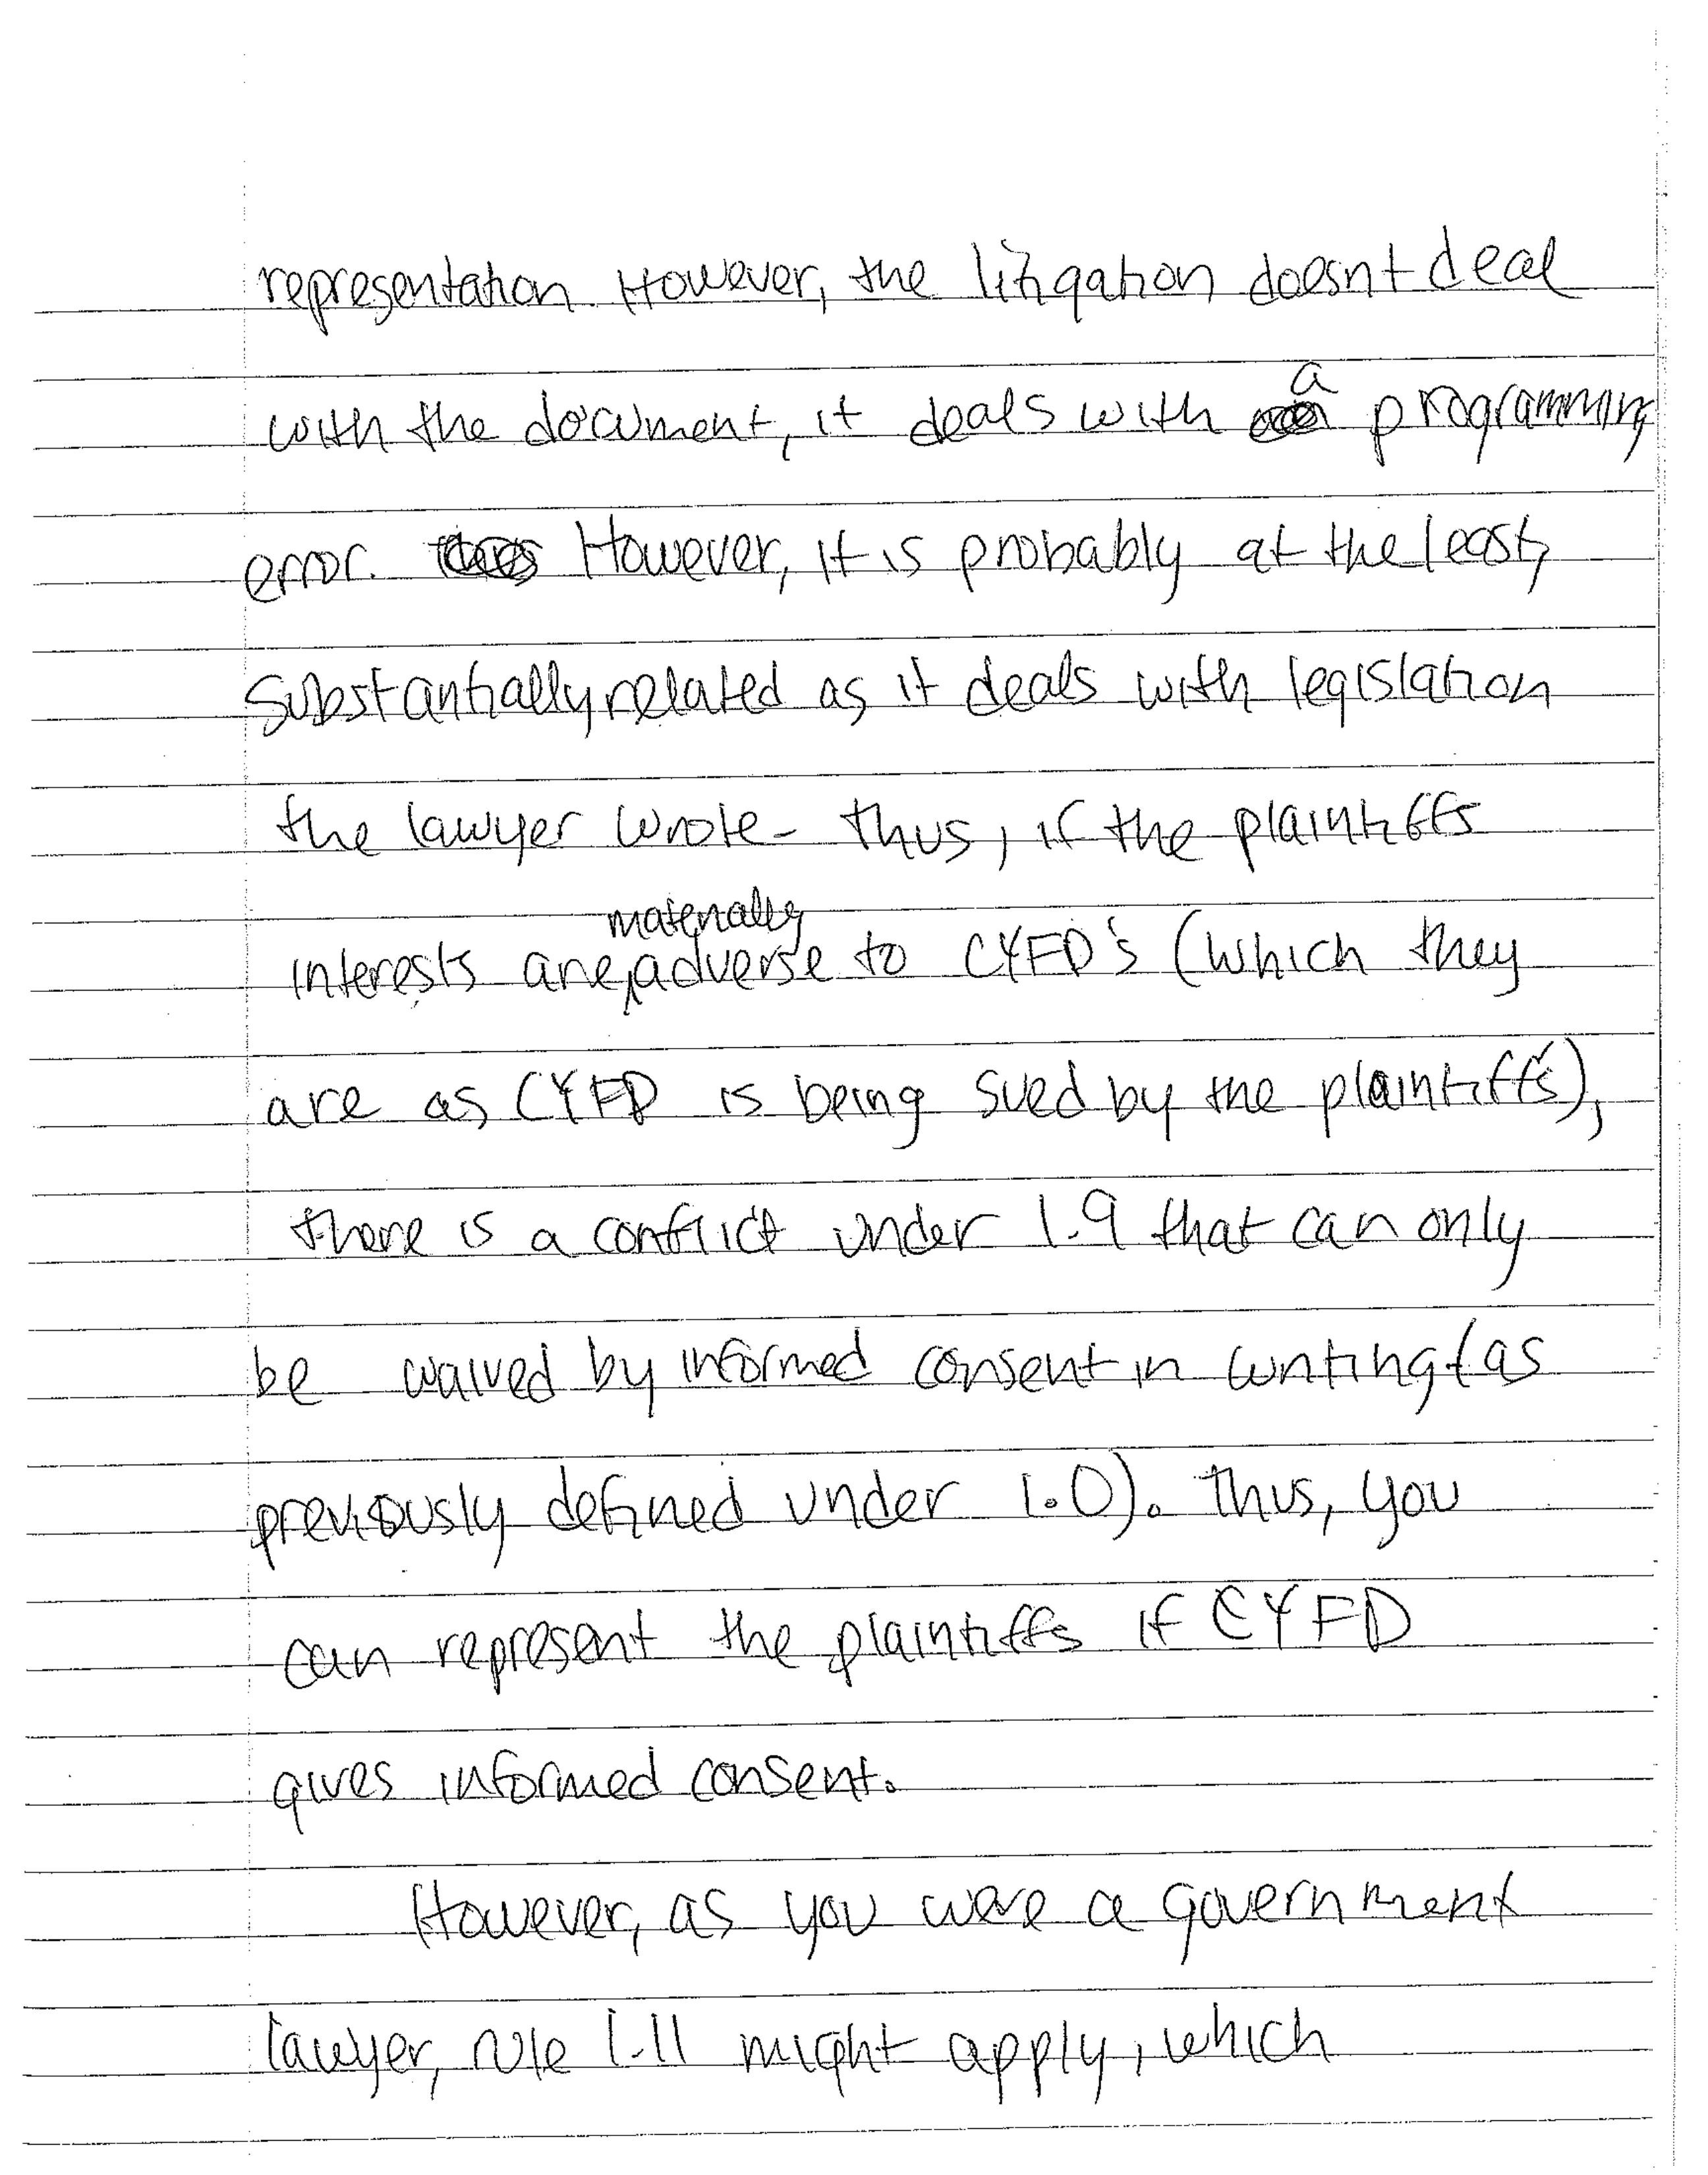 representation. However, the litigation doesnt deal
with the document, it deals with a programming
error. However, it is probably at the least,
substantially related as it deals with legislation
the lawyer wrote. Thus, if the plaintiffs
interests are materially adverse to CYFD's (which they
are as CYFD is being sued by the plaintiffs),
there is a conflict under 1.9 that can only
be waived by informed consent in writing (as
previously defined under 1.0). Thus, you
can represent the plaintiffs if CYFD
gives informed consent.
However, as you were a government
lawyer, rule 1.11 might apply, which